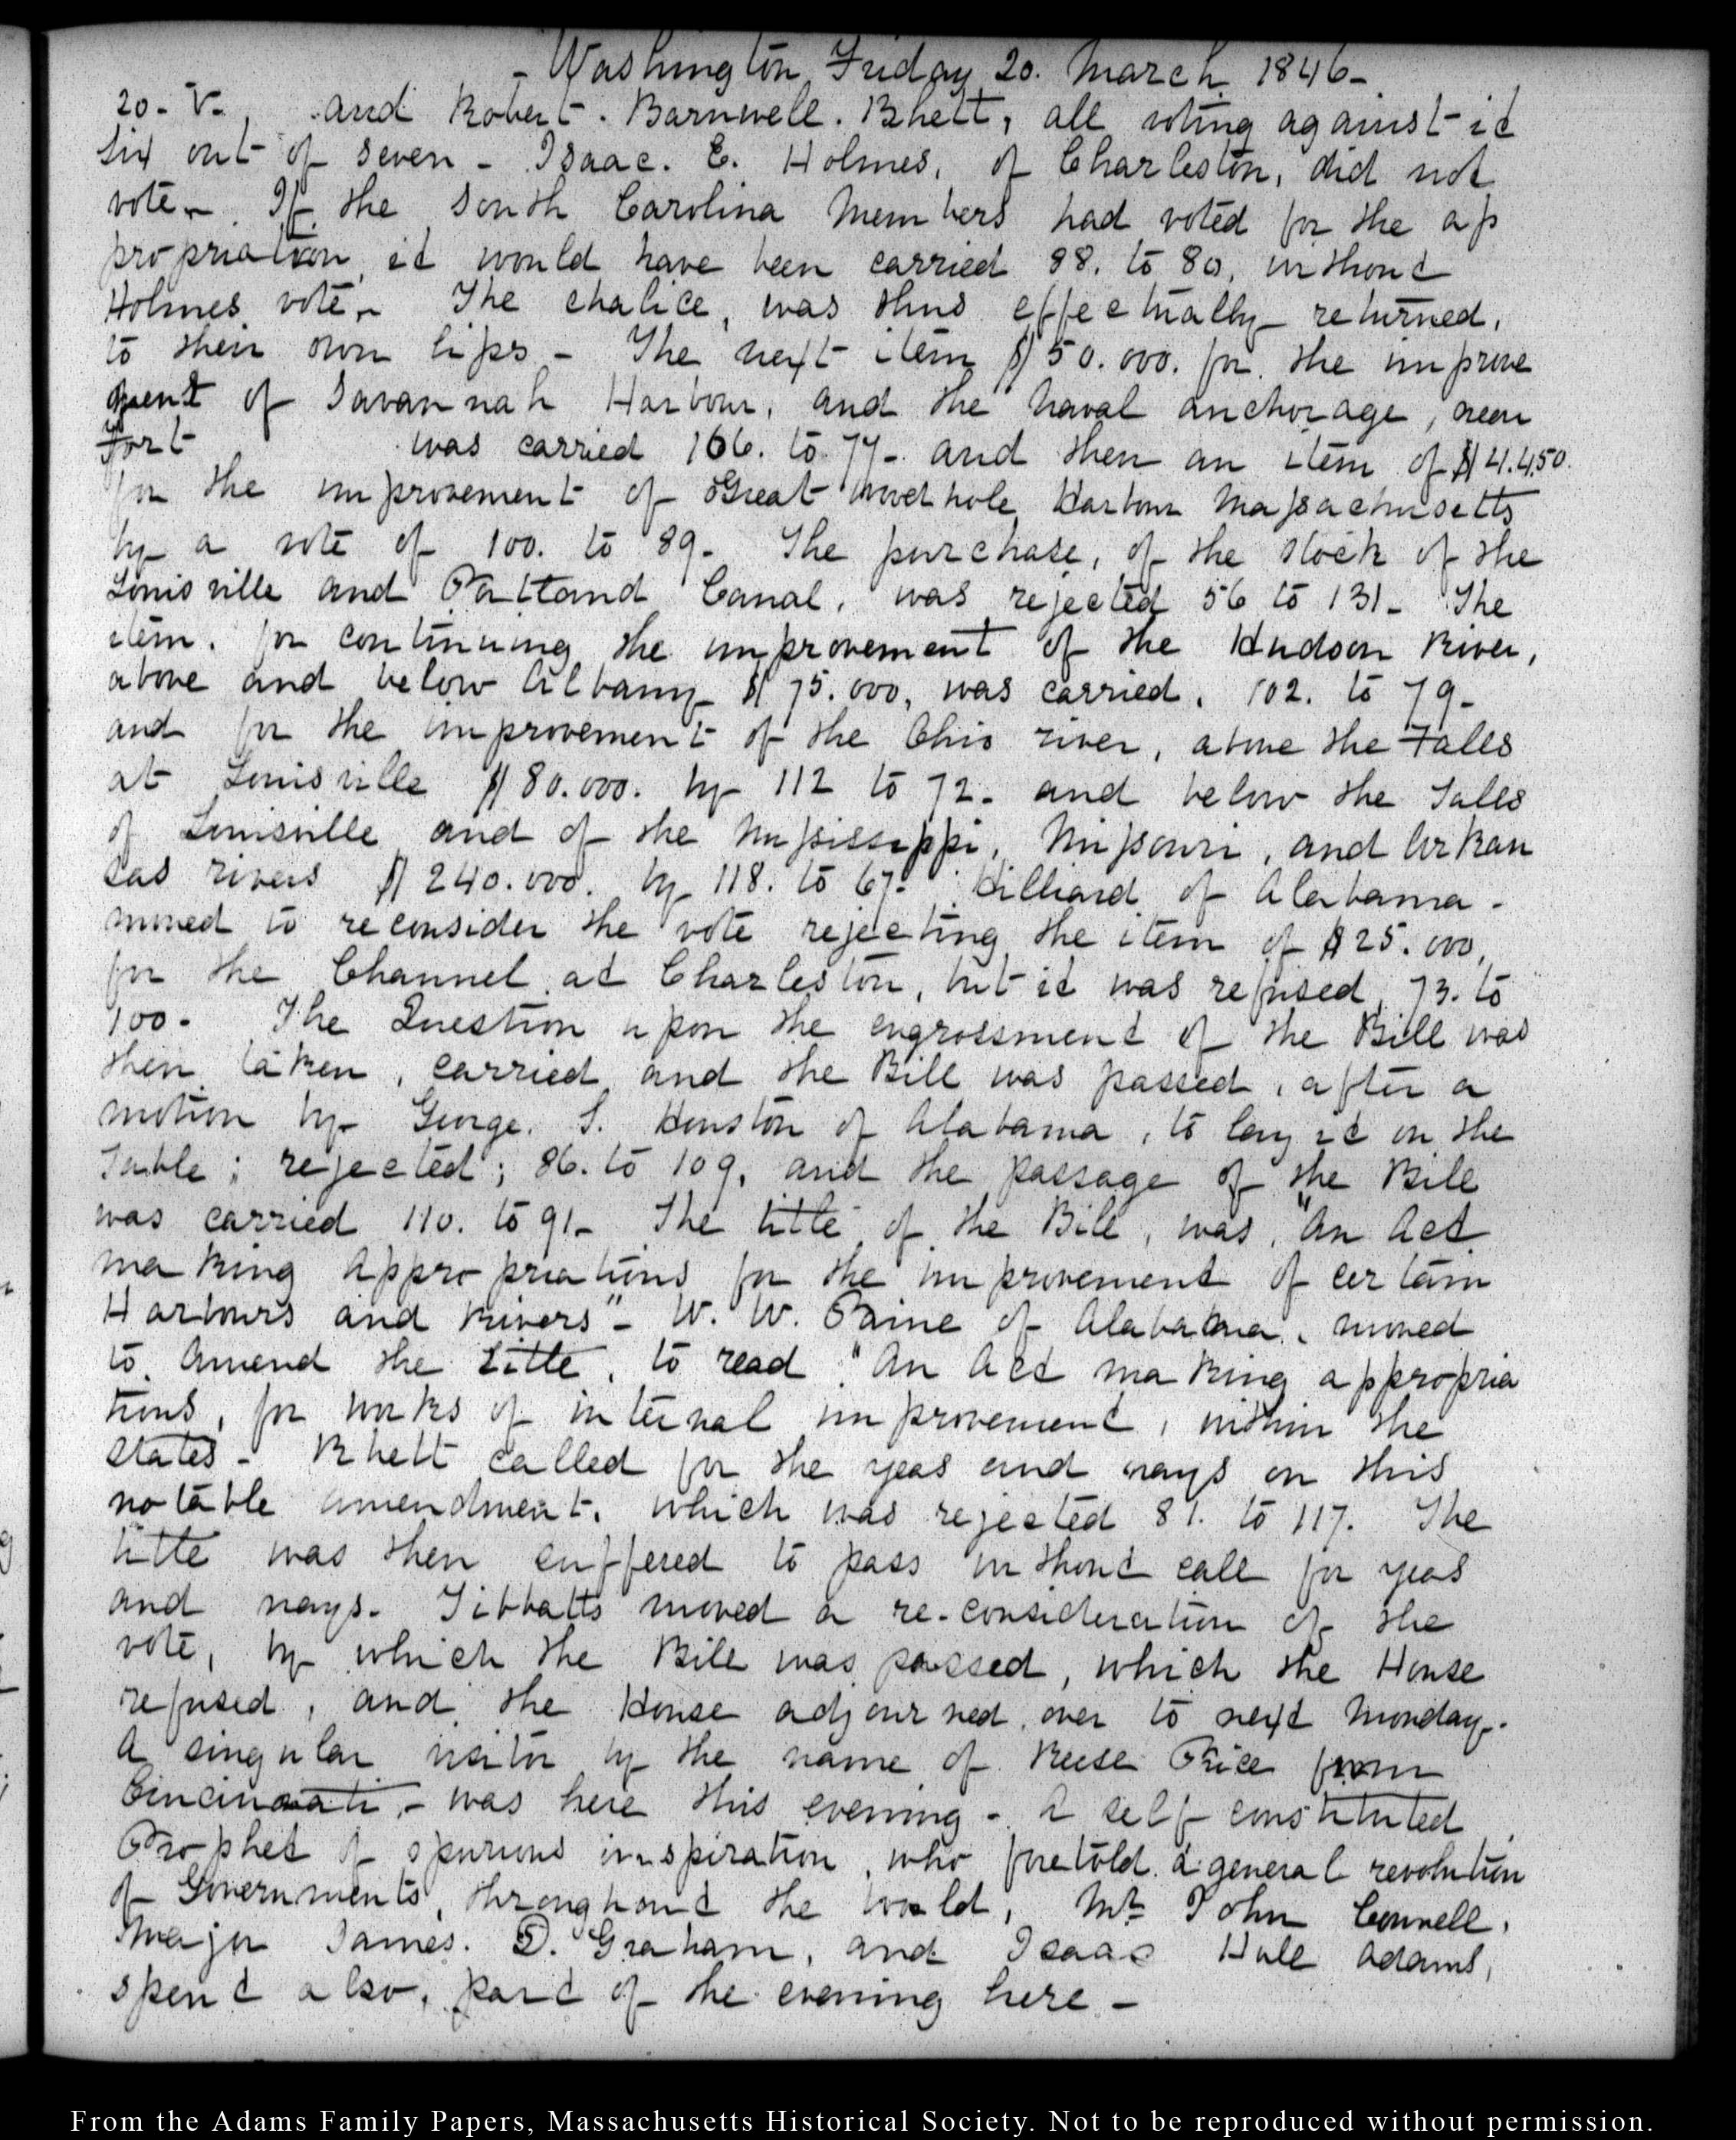 - Washington, Friday 20. March 1846-
20- V. and Robert. Barnwell. Rhett, all voting against it
six out of seven - Isaac. E. Holmes, of Charleston, did not
vote - If the South Carolina Members had voted for the ap
propriation it would have been carried 88. to 80, without
Holmes vote - The chalice, was thus effectually returned,
to their own lips - The next item $50.000. for the improve
ment of Savannah Harbour, and the naval anchorage, near
Fort was carried 106. to 77- and then an item of $4.450.
for the improvement of Great Woodhole Harbour Massachusetts
by a vote of 100. to 89- The purchase, of the stock of the
Louisville and Portland Canal, was rejected 56 to 131- The
item. for continuing the improvement of the Hudson River,
above and below Albany $75.000, was carried. 102. to 79-
and for the improvement of the Ohio river, above the Falls
at Louisville $80.000. by 112 to 72- and below the Falls
of Louisville and of the Mississippi, Missouri, and Arkan
sas rivers $240.000. by 118. to 67- Hilliard of Alabama -
moved to reconsider the vote rejecting the item of $25.000,
for the Channel at Charleston, but it was refused, 73. to
100- The Question upon the engrossment of the Bill was
then taken, carried and the Bill was passed, after a
motion by George. S. Houston of Alabama, to lay it on the
Table; rejected; 86. to 109, and the passage of the Bill
was carried 110. to 91- The title of the Bill, was, "An Act
making appropriations for the improvement of certain
Harbours and Rivers" - W. W. Paine of Alabama, moved
to amend the title, to read "An Act making appropria
tions, for works of internal improvement, within the
States - Rhett called for the yeas and nays on this
notable amendment, which was rejected 81. to 117. The
title was then suffered to pass without call for yeas
and nays - Tibbatts moved a re-consideration of the
vote, by which the Bill was passed, which the House
refused, and the House adjourned over to next Monday -
A singular visitor by the name of Reese Price from
Cincinnati - was here this evening - A self constituted
Prophet of spurious inspiration, who foretold a general revolution
of Governments, throughout the world, Mr. John Connell,
Major James. D. Graham, and Isaac Hull Adams,
spent also, part of the evening here -
From the Adams Family Papers, Massachusetts Historical Society. Not to be reproduced without permission.